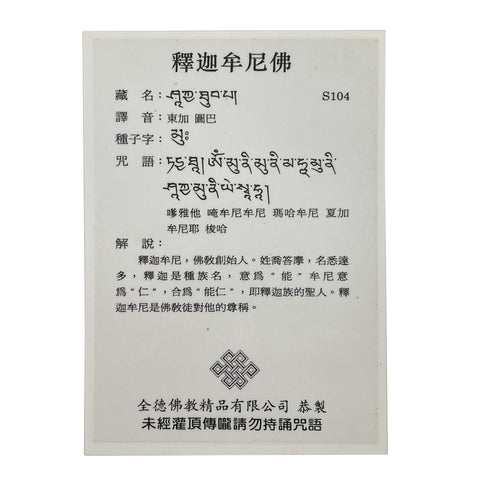 釋迦牟尼佛
藏　名：ཤཱཀྱ་ཐུབ་པ།　S104
譯　音：東加 圖巴
種子字：མུཿ
咒　語：ཏདྱ་ཐཱ། ཨོཾ་མུ་ནི་མུ་ནི་མ་ཧཱ་མུ་ནི་
ཤཱཀྱ་མུ་ནི་ཡེ་སྭཱ་ཧཱ།
嗲雅他 唵牟尼牟尼 瑪哈牟尼 夏加
牟尼耶 梭哈
解　說：
釋迦牟尼，佛敎創始人。姓喬答摩，名悉達
多，釋迦是種族名，意爲“能”牟尼意
爲“仁”，合爲“能仁”，即釋迦族的聖人。釋
迦牟尼是佛敎徒對他的尊稱。
全德佛教精品有限公司 恭製
未經灌頂傳嚨請勿持誦咒語